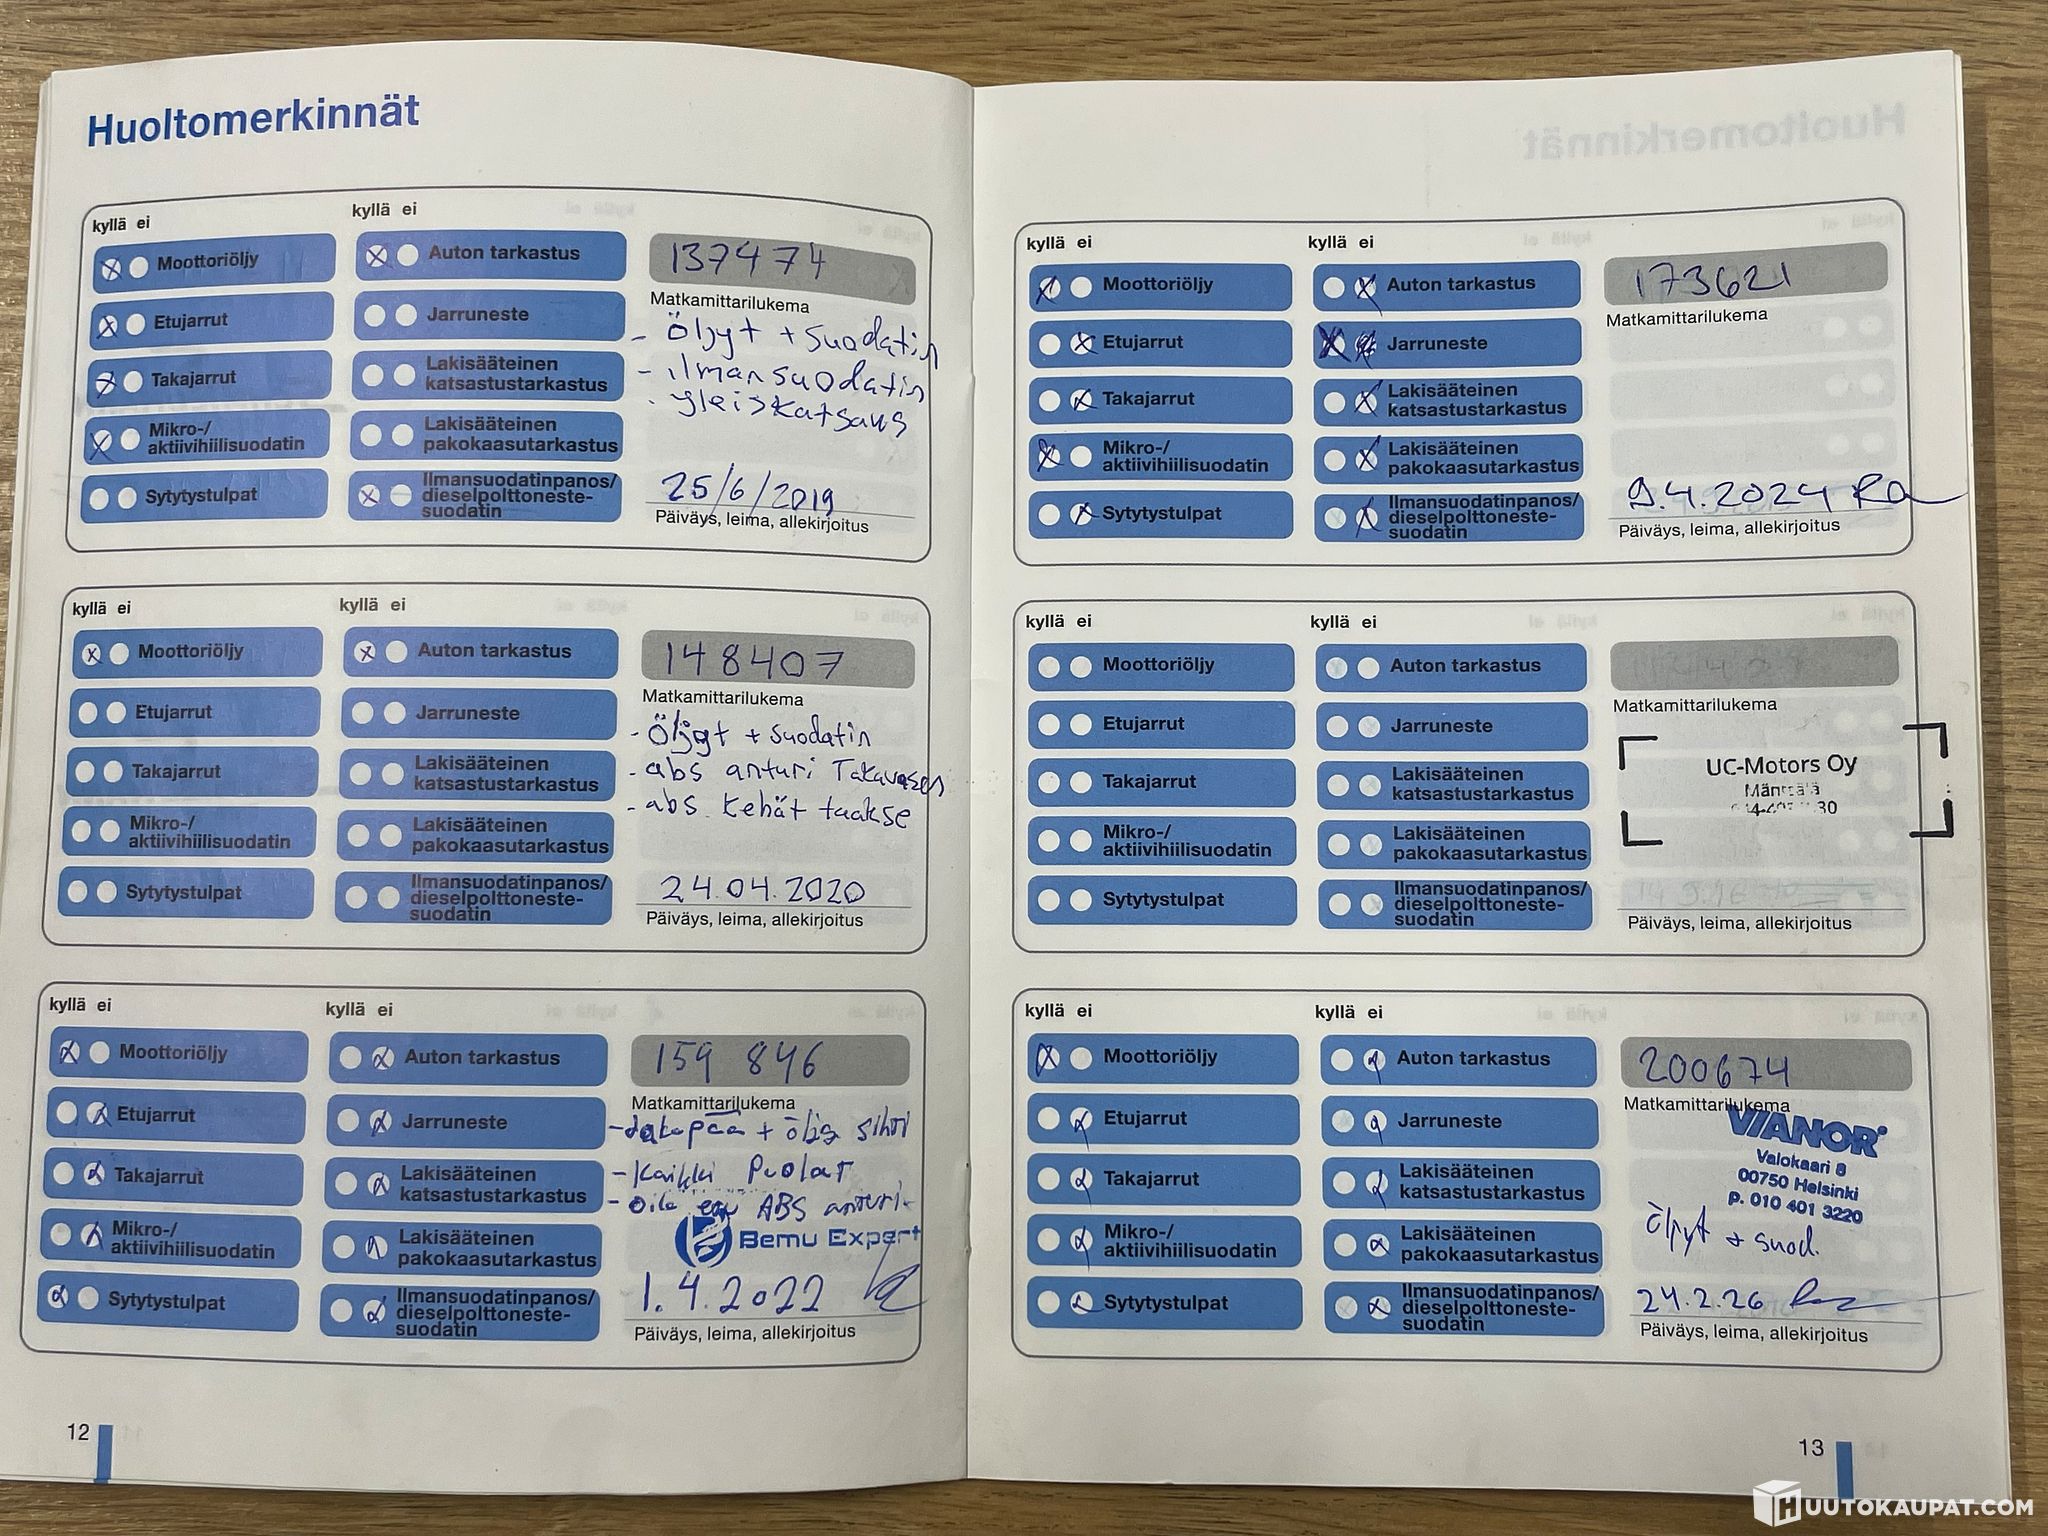 Huoltomerkinnät
kyllä ei
kyllä ei
Moottoriöljy
Auton tarkastus
137474
Etujarrut
Jarruneste
Matkamittarilukema
- Öljyt + suodatin
Takajarrut
Lakisääteinen
katsastustarkastus
- ilmansuodatin
- yleiskatsaus
Mikro-/
aktiivihiilisuodatin
Lakisääteinen
pakokaasutarkastus
Sytytystulpat
Ilmansuodatinpanos/
dieselpolttoneste-
suodatin
25/6/2019
Päiväys, leima, allekirjoitus
kyllä ei
kyllä ei
Moottoriöljy
Auton tarkastus
148407
Etujarrut
Jarruneste
Matkamittarilukema
- Öljyt + suodatin
Takajarrut
Lakisääteinen
katsastustarkastus
- abs anturi Takavasen
- abs kehät taakse
Mikro-/
aktiivihiilisuodatin
Lakisääteinen
pakokaasutarkastus
Sytytystulpat
Ilmansuodatinpanos/
dieselpolttoneste-
suodatin
24.04.2020
Päiväys, leima, allekirjoitus
kyllä ei
kyllä ei
Moottoriöljy
Auton tarkastus
159 846
Etujarrut
Jarruneste
Matkamittarilukema
Takajarrut
Lakisääteinen
katsastustarkastus
- Kaikki Puolat
ABS anturi
Bemu Expert
Mikro-/
aktiivihiilisuodatin
Lakisääteinen
pakokaasutarkastus
Sytytystulpat
Ilmansuodatinpanos/
dieselpolttoneste-
suodatin
1.4.2022
Päiväys, leima, allekirjoitus
12
kyllä ei
kyllä ei
Moottoriöljy
Auton tarkastus
173621
Etujarrut
Jarruneste
Matkamittarilukema
Takajarrut
Lakisääteinen
katsastustarkastus
Mikro-/
aktiivihiilisuodatin
Lakisääteinen
pakokaasutarkastus
Sytytystulpat
Ilmansuodatinpanos/
dieselpolttoneste-
suodatin
9.4.2024
Päiväys, leima, allekirjoitus
kyllä ei
kyllä ei
Moottoriöljy
Auton tarkastus
Etujarrut
Jarruneste
Matkamittarilukema
Takajarrut
Lakisääteinen
katsastustarkastus
UC-Motors Oy
Mikro-/
aktiivihiilisuodatin
Lakisääteinen
pakokaasutarkastus
Sytytystulpat
Ilmansuodatinpanos/
dieselpolttoneste-
suodatin
Päiväys, leima, allekirjoitus
kyllä ei
kyllä ei
Moottoriöljy
Auton tarkastus
200674
Etujarrut
Jarruneste
Matkamittarilukema
VIANOR
Valokaari 8
00750 Helsinki
p. 010 401 3220
Takajarrut
Lakisääteinen
katsastustarkastus
öljyt + suod.
Mikro-/
aktiivihiilisuodatin
Lakisääteinen
pakokaasutarkastus
Sytytystulpat
Ilmansuodatinpanos/
dieselpolttoneste-
suodatin
24.2.26
Päiväys, leima, allekirjoitus
13
HUUTOKAUPAT.COM